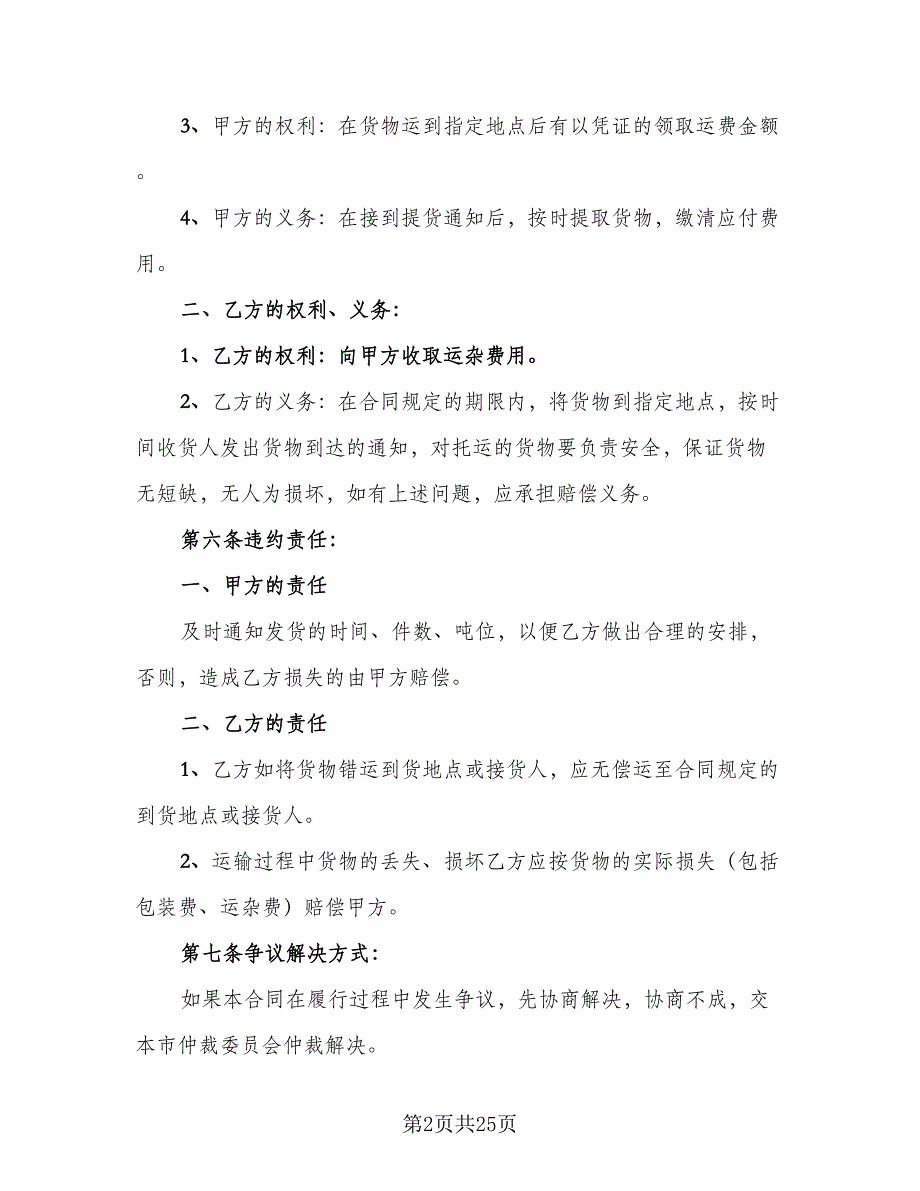 3、甲方的权利：在货物运到指定地点后有以凭证的领取运费金额
。
4、甲方的义务：在接到提货通知后，按时提取货物，缴清应付费
用。
二、乙方的权利、义务：
1、乙方的权利：向甲方收取运杂费用。
2、乙方的义务：在合同规定的期限内，将货物到指定地点，按时
间收货人发出货物到达的通知，对托运的货物要负责安全，保证货物
无短缺，无人为损坏，如有上述问题，应承担赔偿义务。
第六条违约责任：
一、甲方的责任
及时通知发货的时间、件数、吨位，以便乙方做出合理的安排，
否则，造成乙方损失的由甲方赔偿。
二、乙方的责任
1、乙方如将货物错运到货地点或接货人，应无偿运至合同规定的
到货地点或接货人。
2、运输过程中货物的丢失、损坏乙方应按货物的实际损失（包括
包装费、运杂费）赔偿甲方。
第七条争议解决方式：
如果本合同在履行过程中发生争议，先协商解决，协商不成，交
本市仲裁委员会仲裁解决。
第2页共25页